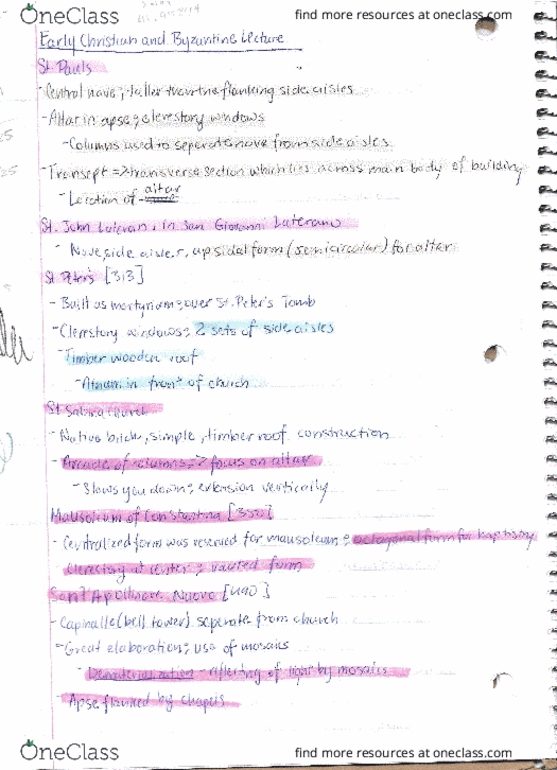 OneClass
find more resources at oneclass.com
Early Christian and Byzantine Lecture
St. Pauls
- Central nave; taller than the flanking side aisles
- Altar in apse; clerestory windows
- Columns used to seperate nave from side aisles
- Transept => transverse section which lies across main body of building
- Location of altar
St. John Lateran, in San Giovanni Laterano
- Nave, side aisles, apsidal form (semicircular) for altar
St Peter's [313]
- Built as martyrium; over St. Peter's Tomb
- Clerestory windows; 2 sets of side aisles
- Timber wooden roof
- Atrium in front of church
St Sabina church
- Native brick, simple, timber roof construction
- Arcade of columns; focus on altar
- Slows you down; extension vertically
Mausoleum of Constantina [350]
- Centralized form was reserved for mausoleum; octagonal form for baptising
- Clerestory at center; vaulted form
Sant'Apollinare Nuovo [490]
- (bell tower) seperate from church
- Great elaboration; use of mosaics
- Dematerialization - reflecting of light by mosaics
- Apse flanked by chapels
OneClass
find more resources at oneclass.com